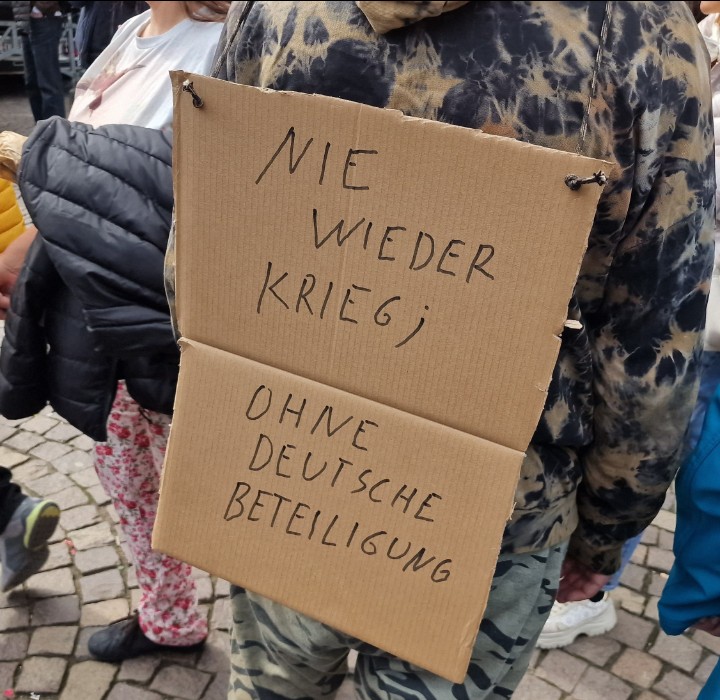 NIE
WIEDER
KRIEG;
OHNE
DEUTSCHE
BETEILIGUNG